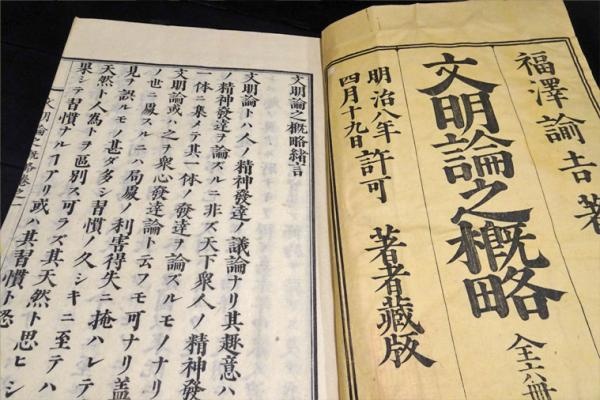 福澤諭吉著
文明論之概略
全六冊
明治八年
四月十九日
許可
著者藏版
文明論之概略緒言
文明論トハ人ノ精神發達ノ議論ナリ其趣意ハ
ノ精神發達ヲ論ズルニ非ズ天下衆人ノ精神發
一体ニ集メテ其一体ノ發達ヲ論ズルモノナリ
文明論或ハ之ヲ衆心發達論ト云フモ可ナリ蓋
ノ世ニ處スルニハ局處ノ利害得失ニ掩ハレテ
見ヲ誤ルモノ甚ダ多シ習慣ノ久シキニ至テハ
天然ト人為トヲ區別ス可ラズ其天然ト思ヒシ
果シテ習慣ナルヿアリ或ハ其習慣ト恐
文明論之概略卷之一